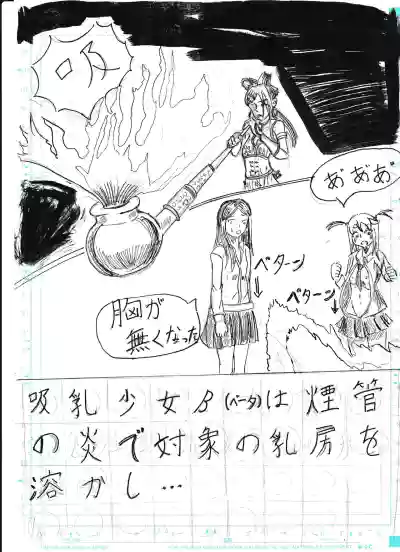 吸
あ゛あ゛あ゛
ペターン
ペターン
胸が
無くなった
吸乳少女β(ベータ)は煙管
の炎で対象の乳房を
溶かし…